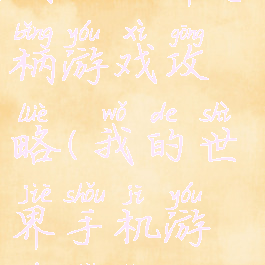 lǎng yóu xì gōng
柄游戏攻
lüè wǒ de shì
略(我的世
jiè shǒu jī yóu
界手机游